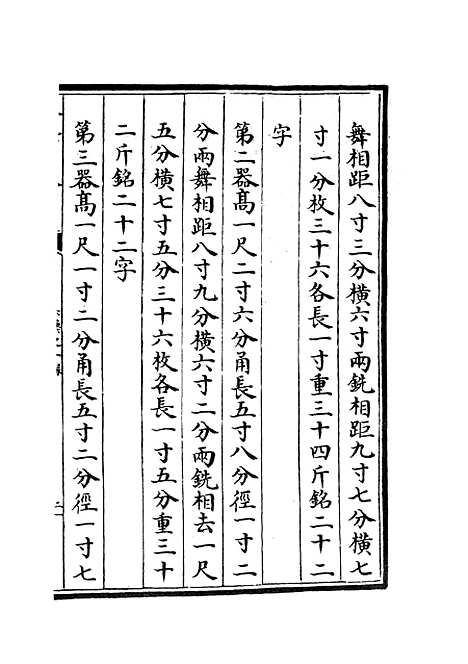 舞相距八寸三分横六寸兩銑相距九寸七分横七
寸一分枚三十六各長一寸重三十四斤銘二十二
字
第二器髙一尺二寸六分甬長五寸八分徑一寸二
分兩舞相距八寸九分横六寸二分兩銑相去一尺
五分横七寸五分三十六枚各長一寸五分重三十
二斤銘二十二字
第三器髙一尺一寸二分甬長五寸二分徑一寸七